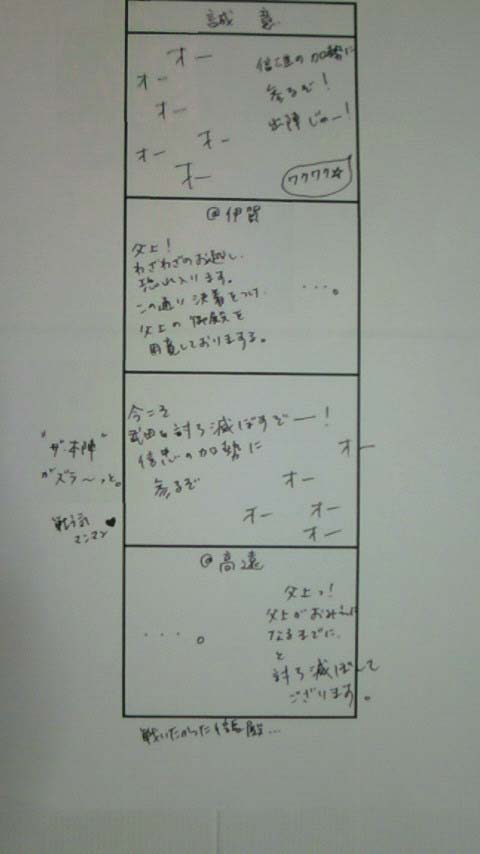 誠意
信雄の加勢に
参るぞ！
出陣じゃー！
オー
オー
オー
オー
オー
オー
ワクワク☆
@伊賀
父上！
わざわざのお越し、
恐れ入ります。
この通り決着をつけ、
父上の御殿を
用意しておりまする。
・・・。
今こそ
武田を討ち滅ぼすぞー！
信忠の加勢に
参るぞ
オー
オー
オー
オー
オー
"ザ・本陣"
がズラ〜っと。
戦う気
マンマン♥
@高遠
父上っ！
父上がおみえに
なるまでに、
と
討ち滅ぼして
ござります。
・・・。
戦いたかった信長殿…